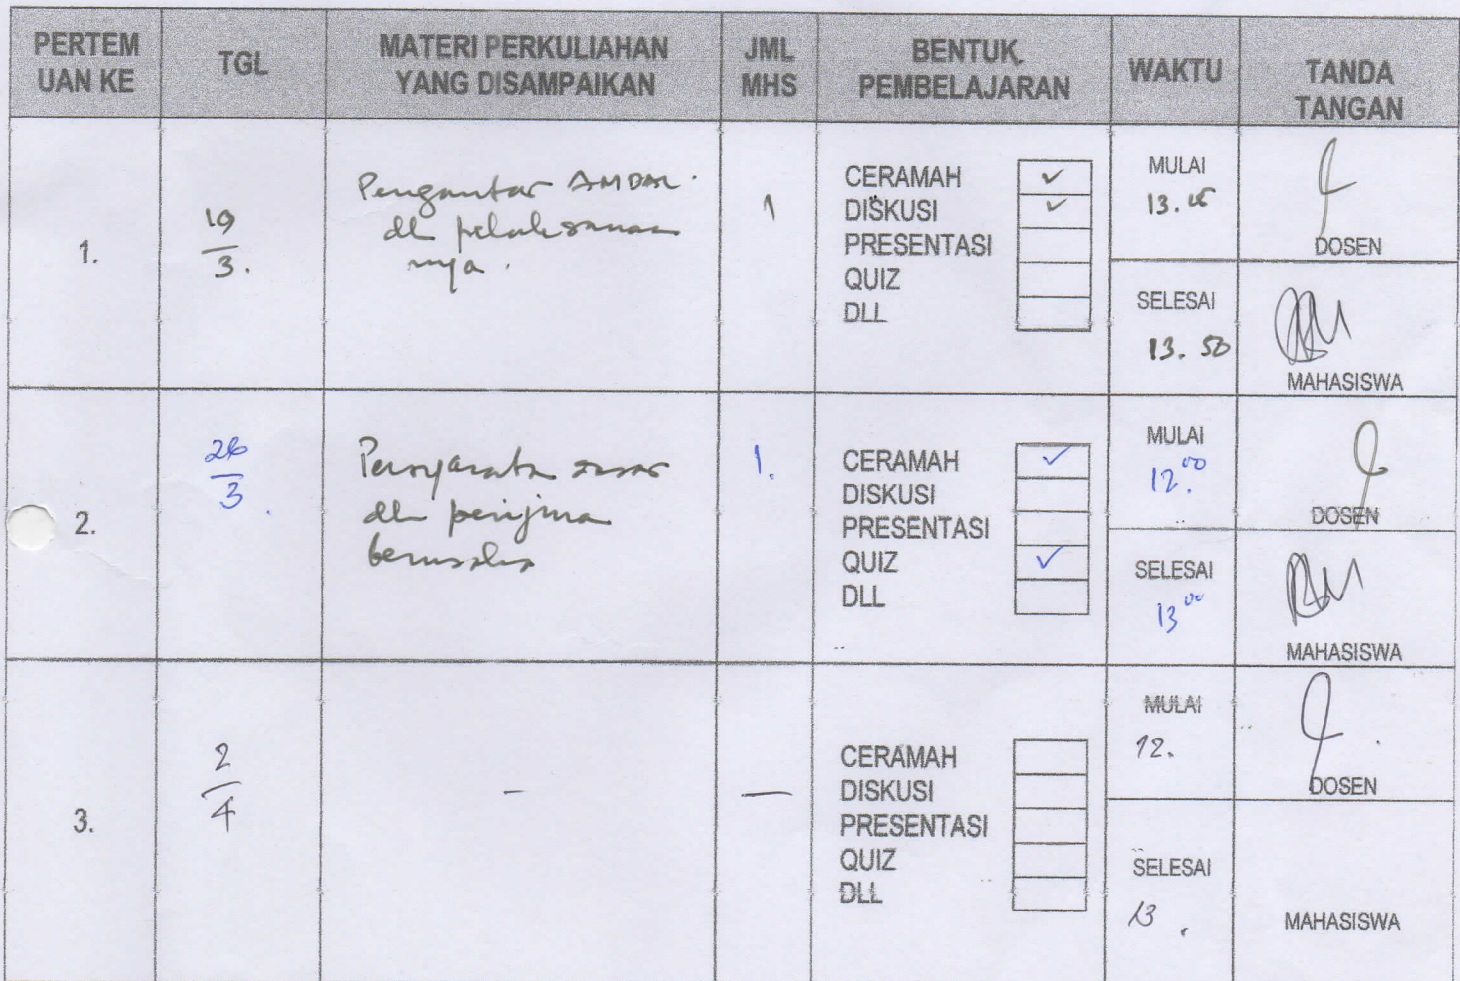 PERTEM
UAN KE
TGL
MATERI PERKULIAHAN
YANG DISAMPAIKAN
JML
MHS
BENTUK
PEMBELAJARAN
WAKTU
TANDA
TANGAN
1.
19
3.
Pengantar AMDAL.
dll pelaksanaan
nya.
1
CERAMAH ✓
DISKUSI ✓
PRESENTASI
QUIZ
DLL
MULAI
13.
DOSEN
SELESAI
13.50
MAHASISWA
2.
26
3.
dll
1.
CERAMAH ✓
DISKUSI
PRESENTASI
QUIZ ✓
DLL
MULAI
12.00
DOSEN
SELESAI
13 00
MAHASISWA
3.
2
4
-
—
CERAMAH
DISKUSI
PRESENTASI
QUIZ
DLL
MULAI
12.
DOSEN
SELESAI
13.
MAHASISWA